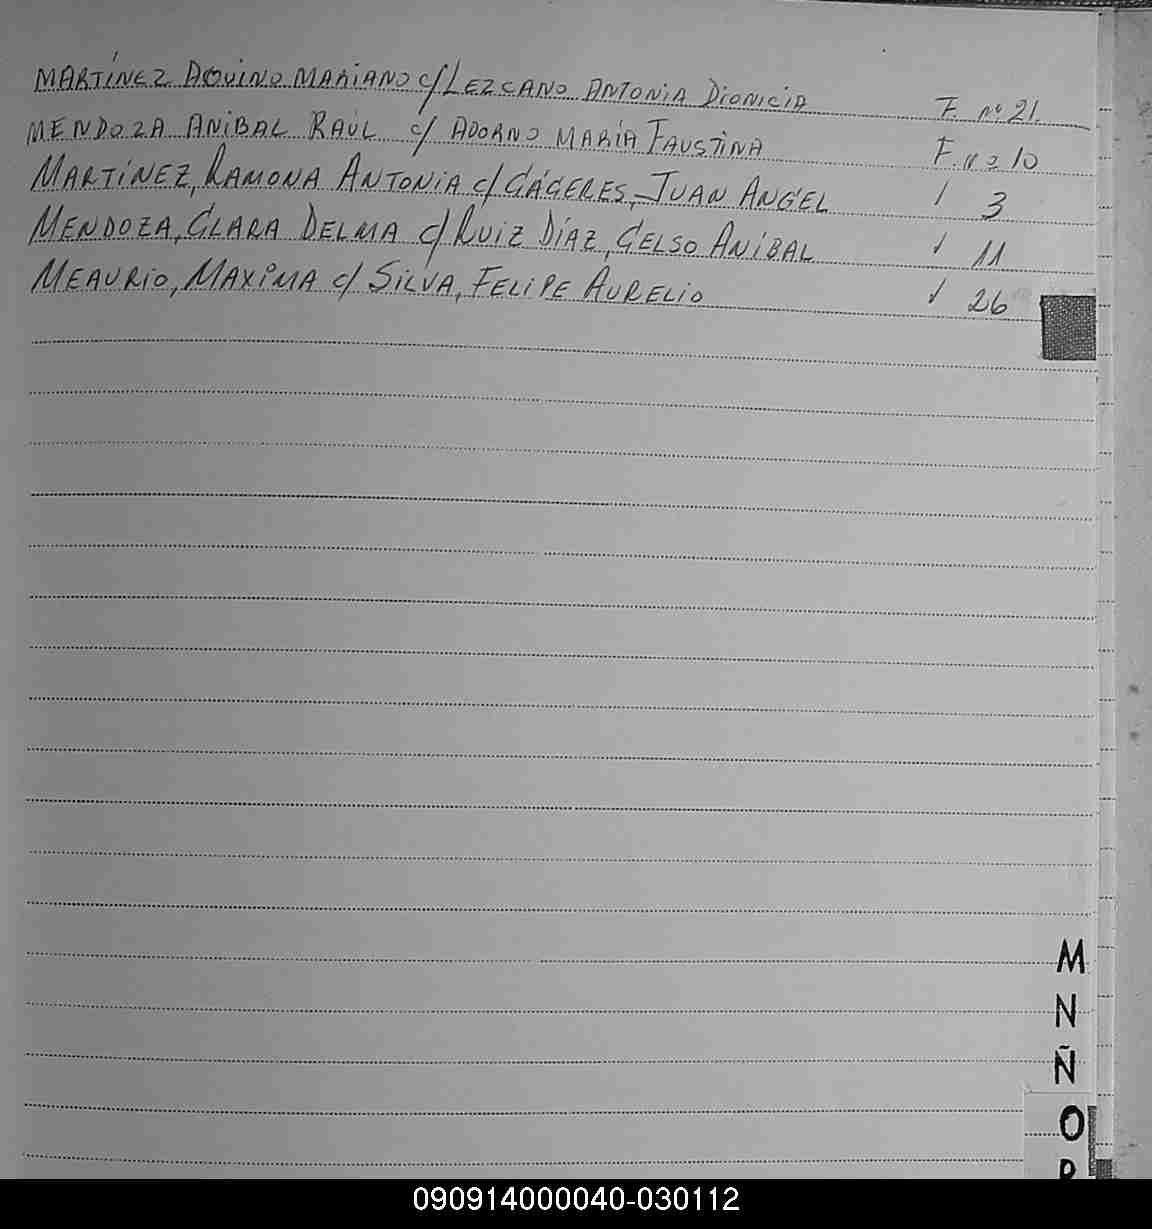 MARTÍNEZ AQUINO MARIANO c/ LEZCANO ANTONIA DIONICIA F. nº 21.
MENDOZA ANIBAL RAÚL c/ ADORNO MARÍA FAUSTINA F. nº 10
MARTÍNEZ, RAMONA ANTONIA c/ CÁCERES, JUAN ANGEL / 3
MENDOZA, CLARA DELMA c/ RUIZ DÍAZ, CELSO ANIBAL / 11
MEAURIO, MAXIMA c/ SILVA, FELIPE AURELIO / 26
M
N
Ñ
O
P
090914000040-030112